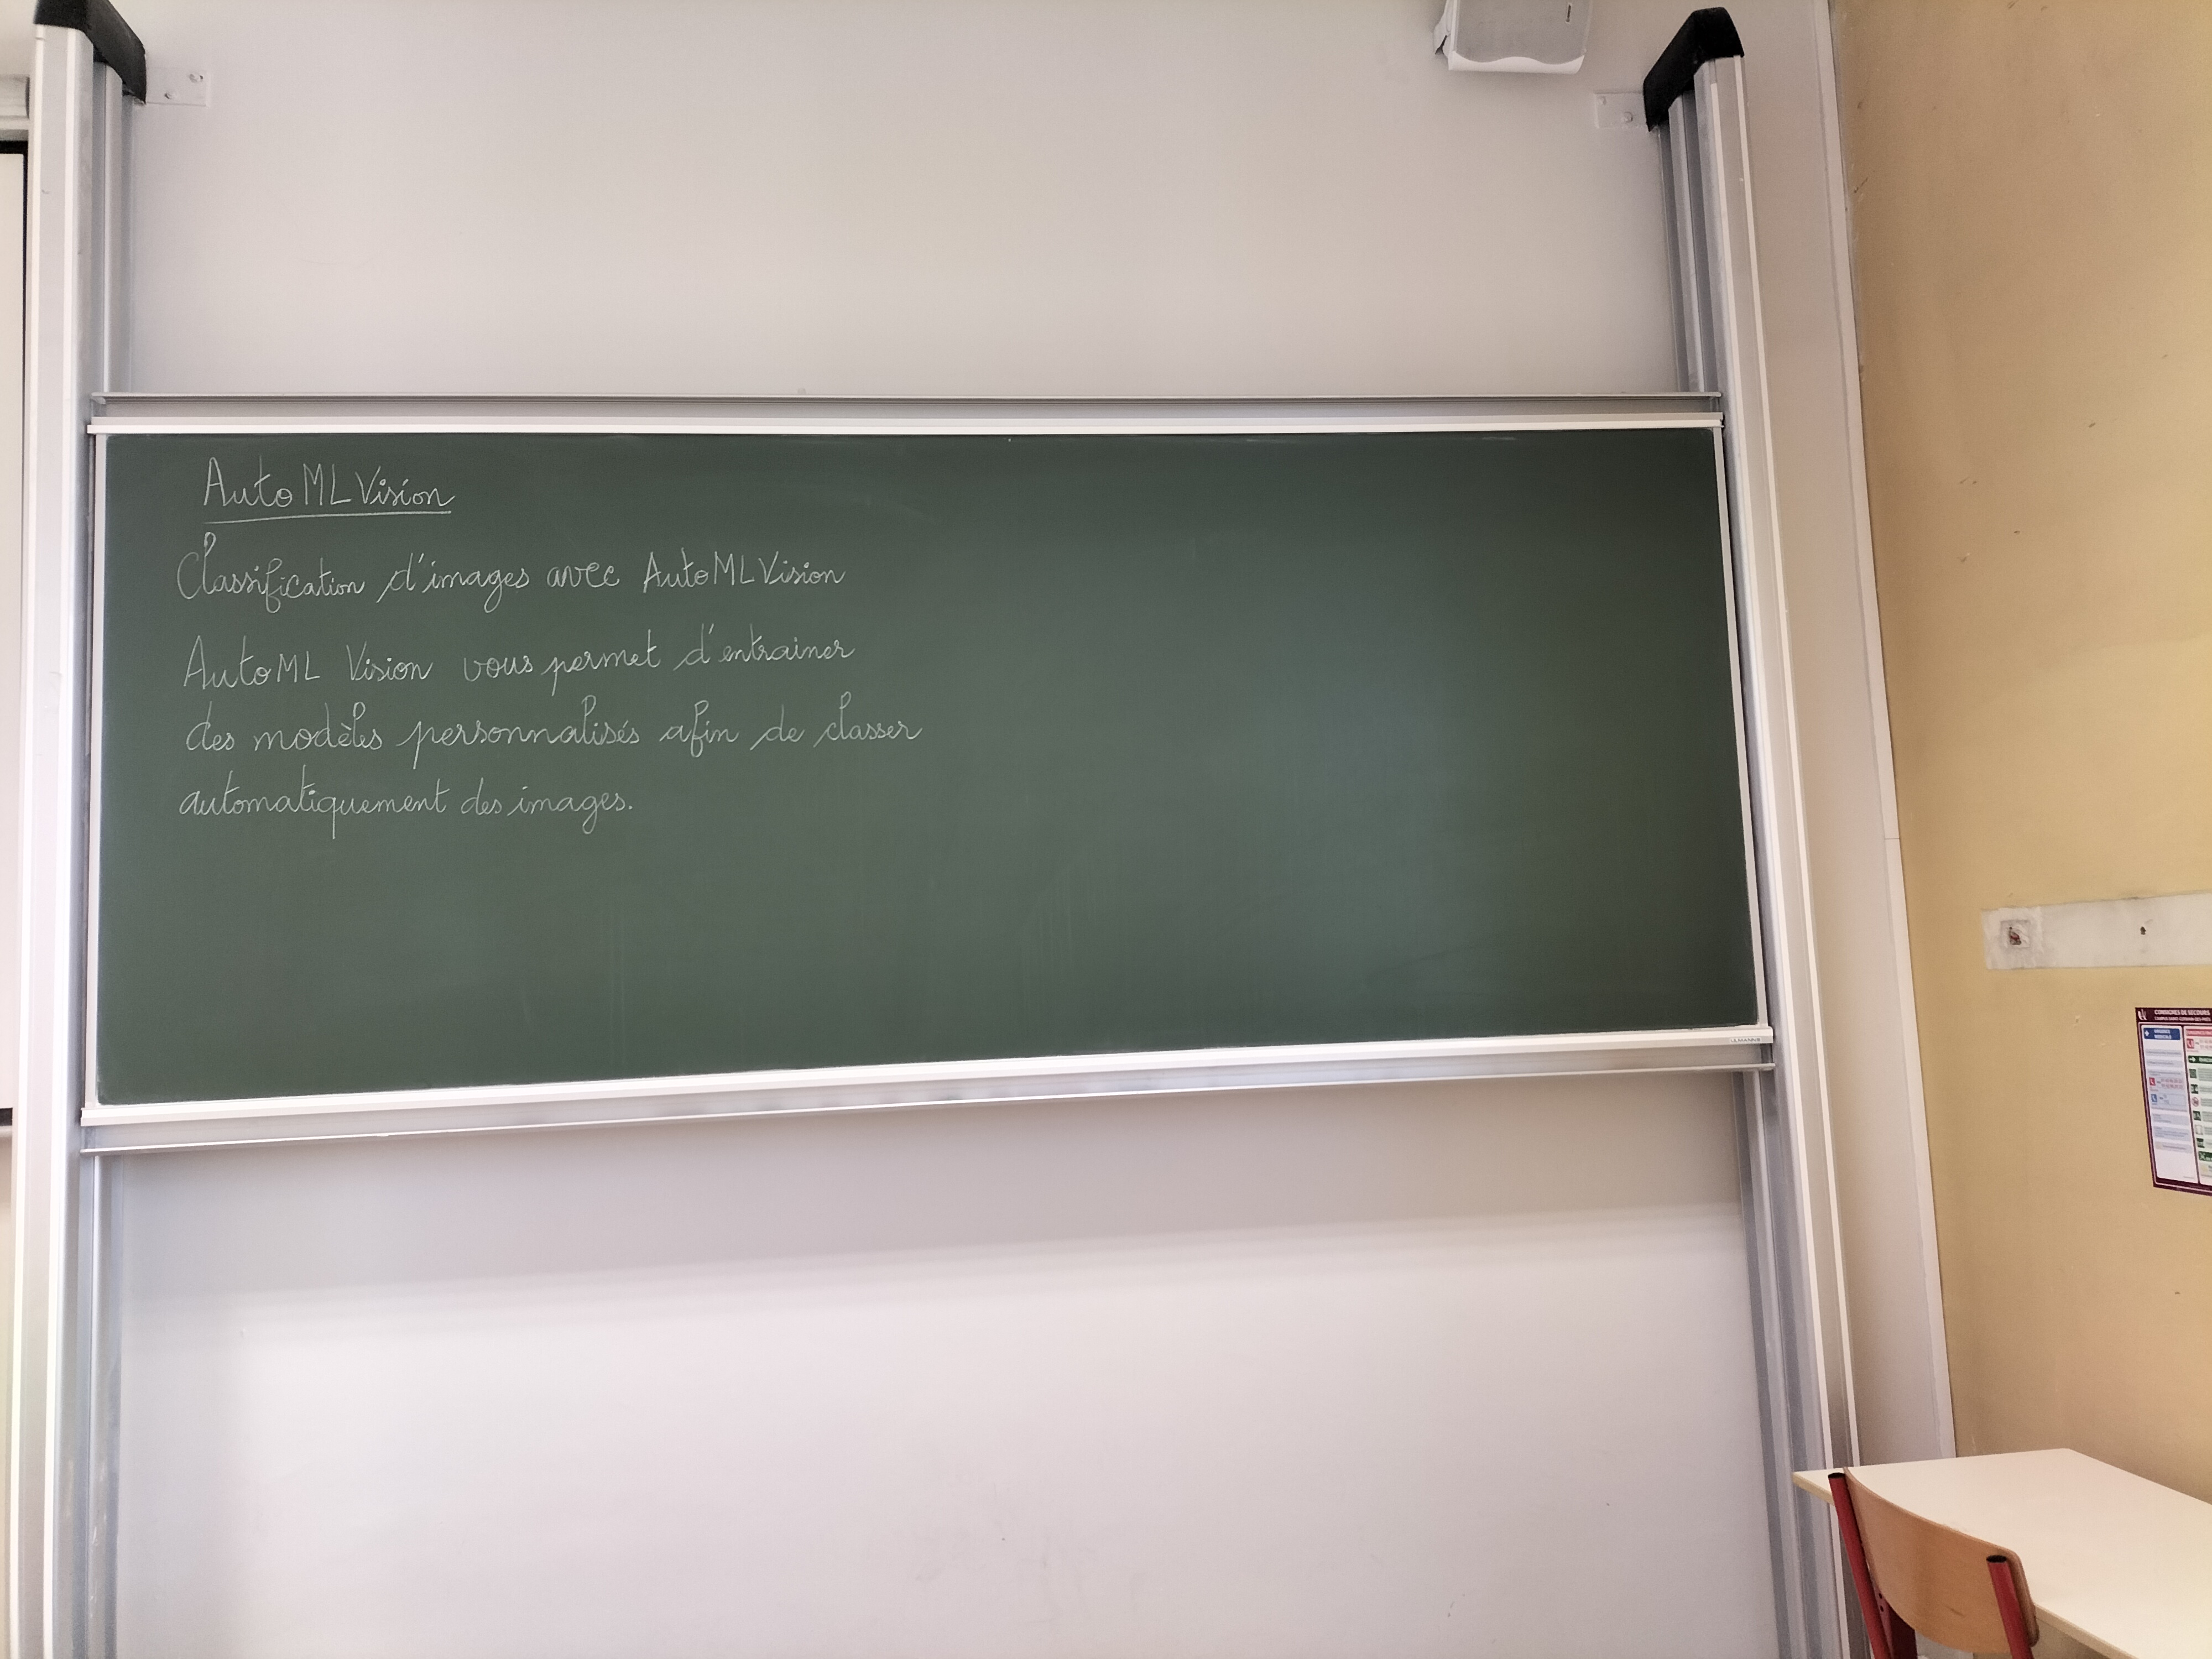 AutoML Vision
Classification d'images avec AutoML Vision
AutoML Vision vous permet d'entrainer
des modèles personnalisés afin de classer
automatiquement des images.
ULMANN
CONSIGNES DE SECOURS